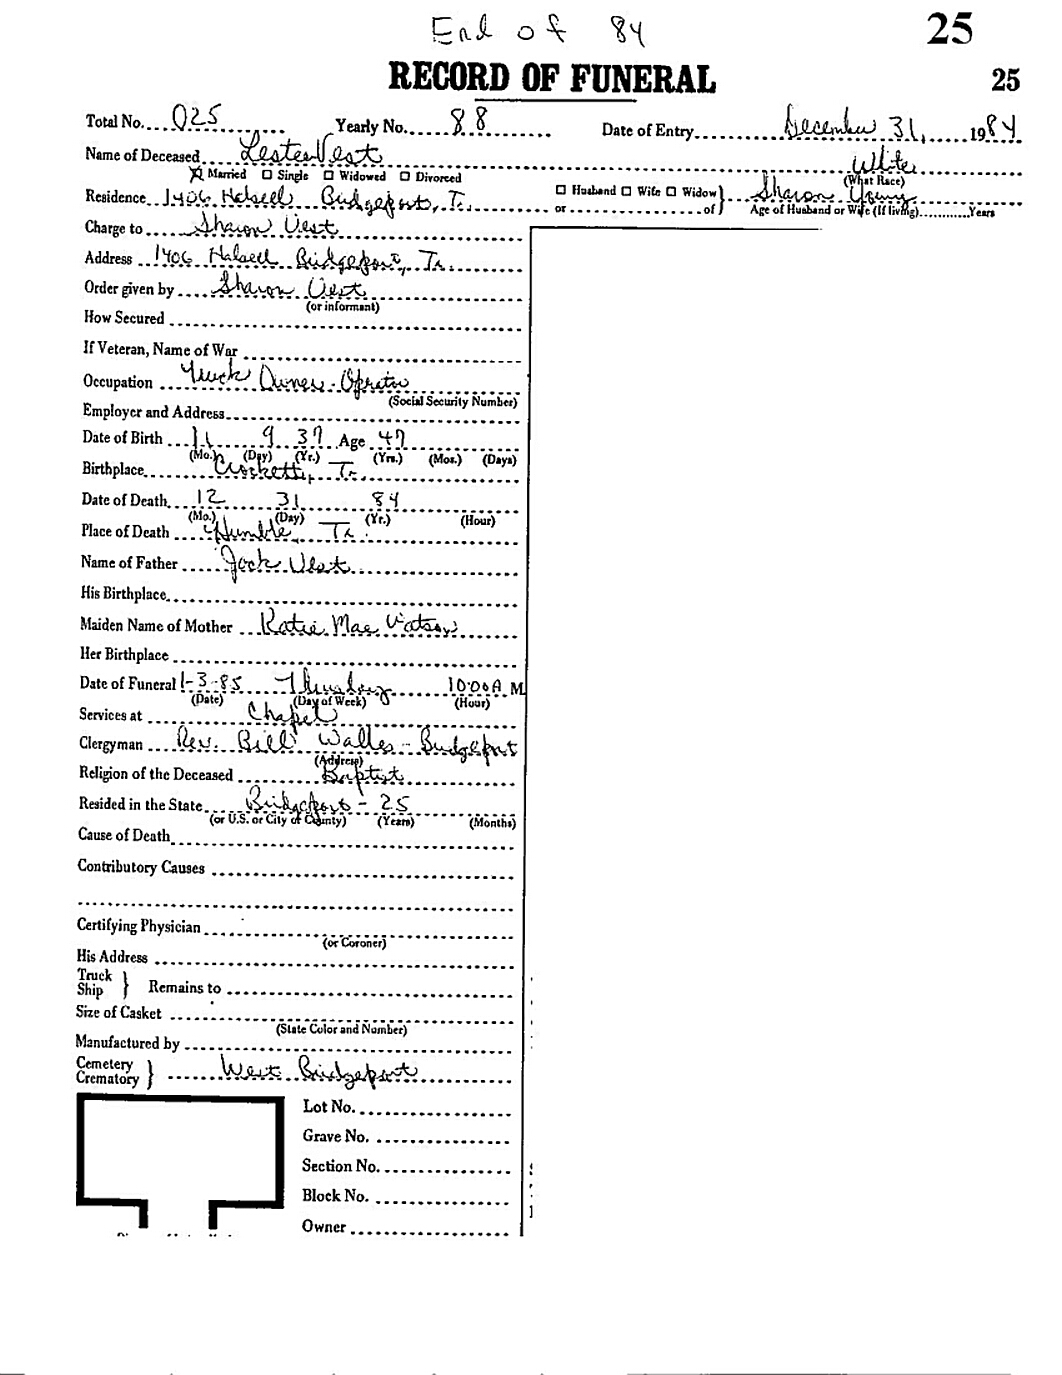 End of 84
25
RECORD OF FUNERAL
25
Total No. 025 Yearly No. 88 Date of Entry December 31, 1984
Name of Deceased Lester Vest White
Married Single Widowed Divorced (What Race)
Residence 1406 Halsell Bridgeport, Tx. Husband Wife Widow or of Sharon Young
Age of Husband or Wife (If living) Years
Charge to Sharon Vest
Address 1406 Halsell Bridgeport, Tx.
Order given by Sharon Vest
(or informant)
How Secured
If Veteran, Name of War
Occupation Truck Owner-Opretor
(Social Security Number)
Employer and Address
Date of Birth 11 9 37 Age 47
(Mo.) (Day) (Yr.) (Yrs.) (Mos.) (Days)
Birthplace Crockett, Tx
Date of Death 12 31 84
(Mo.) (Day) (Yr.) (Hour)
Place of Death Humble, Tx.
Name of Father Jack Vest
His Birthplace
Maiden Name of Mother Katie Mae Watson
Her Birthplace
Date of Funeral 1-3-85 Thursday 10:00 A M.
(Date) (Day of Week) (Hour)
Services at Chapel
Clergyman Rev. Bill Walles - Bridgeport
(Address)
Religion of the Deceased Baptist
Resided in the State Bridgeport - 25
(or U.S. or City of County) (Years) (Months)
Cause of Death
Contributory Causes
Certifying Physician
(or Coroner)
His Address
Truck
Ship Remains to
Size of Casket
(State Color and Number)
Manufactured by
Cemetery
Crematory West Bridgeport
Lot No.
Grave No.
Section No.
Block No.
Owner